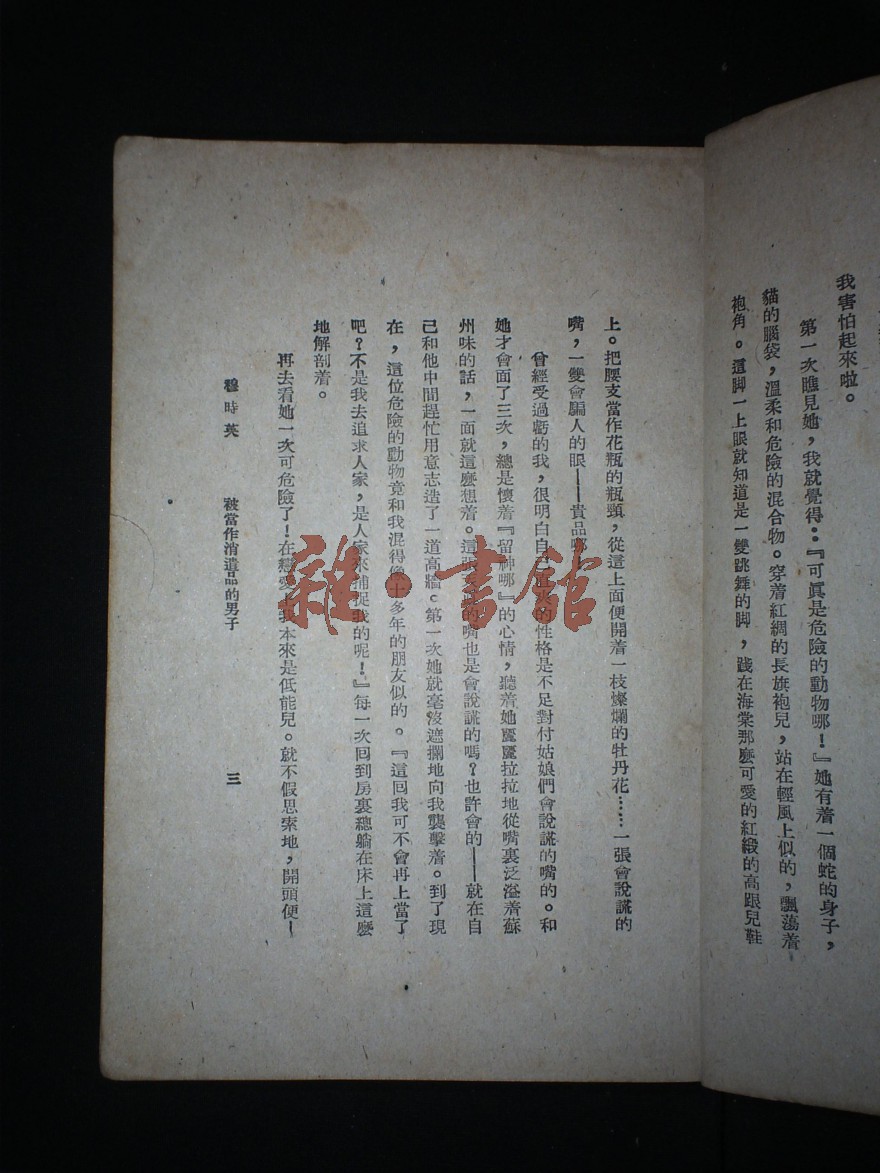 我害怕起來啦。
第一次瞧見她，我就覺得：『可眞是危險的動物哪！』她有着一個蛇的身子，
貓的腦袋，溫柔和危險的混合物。穿着紅綢的長旗袍兒，站在輕風上似的，飄蕩着
袍角。這脚一上眼就知道是一雙跳舞的脚，踐在海棠那麽可愛的紅緞的高跟兒鞋
上。把腰支當作花瓶的瓶頸，從這上面便開着一枝燦爛的牡丹花……一張會說謊的
嘴，一雙會騙人的眼——貴品哪
曾經受過虧的我，很明白自己直爽的性格是不足對付姑娘們會說謊的嘴的。和
她才會面了三次，總是懷着『留神哪』的心情，聽着她麗麗拉拉地從嘴裏泛溢着蘇
州味的話，一面就這麽想着。這張的嘴也是會說謊的嗎？也許會的——就在自
己和他中間趕忙用意志造了一道高牆。第一次她就毫沒遮攔地向我襲擊着。到了現
在，這位危險的動物竟和我混得像十多年的朋友似的。『這回我可不會再上當了
吧？不是我去追求人家，是人家來捕捉我的呢！』每一次回到房裏總躺在床上這麽
地解剖着。
再去看她一次可危險了！在戀愛上我本來是低能兒。就不假思索地，開頭便—
穆時英 被當作消遣品的男子 三
雜·書館